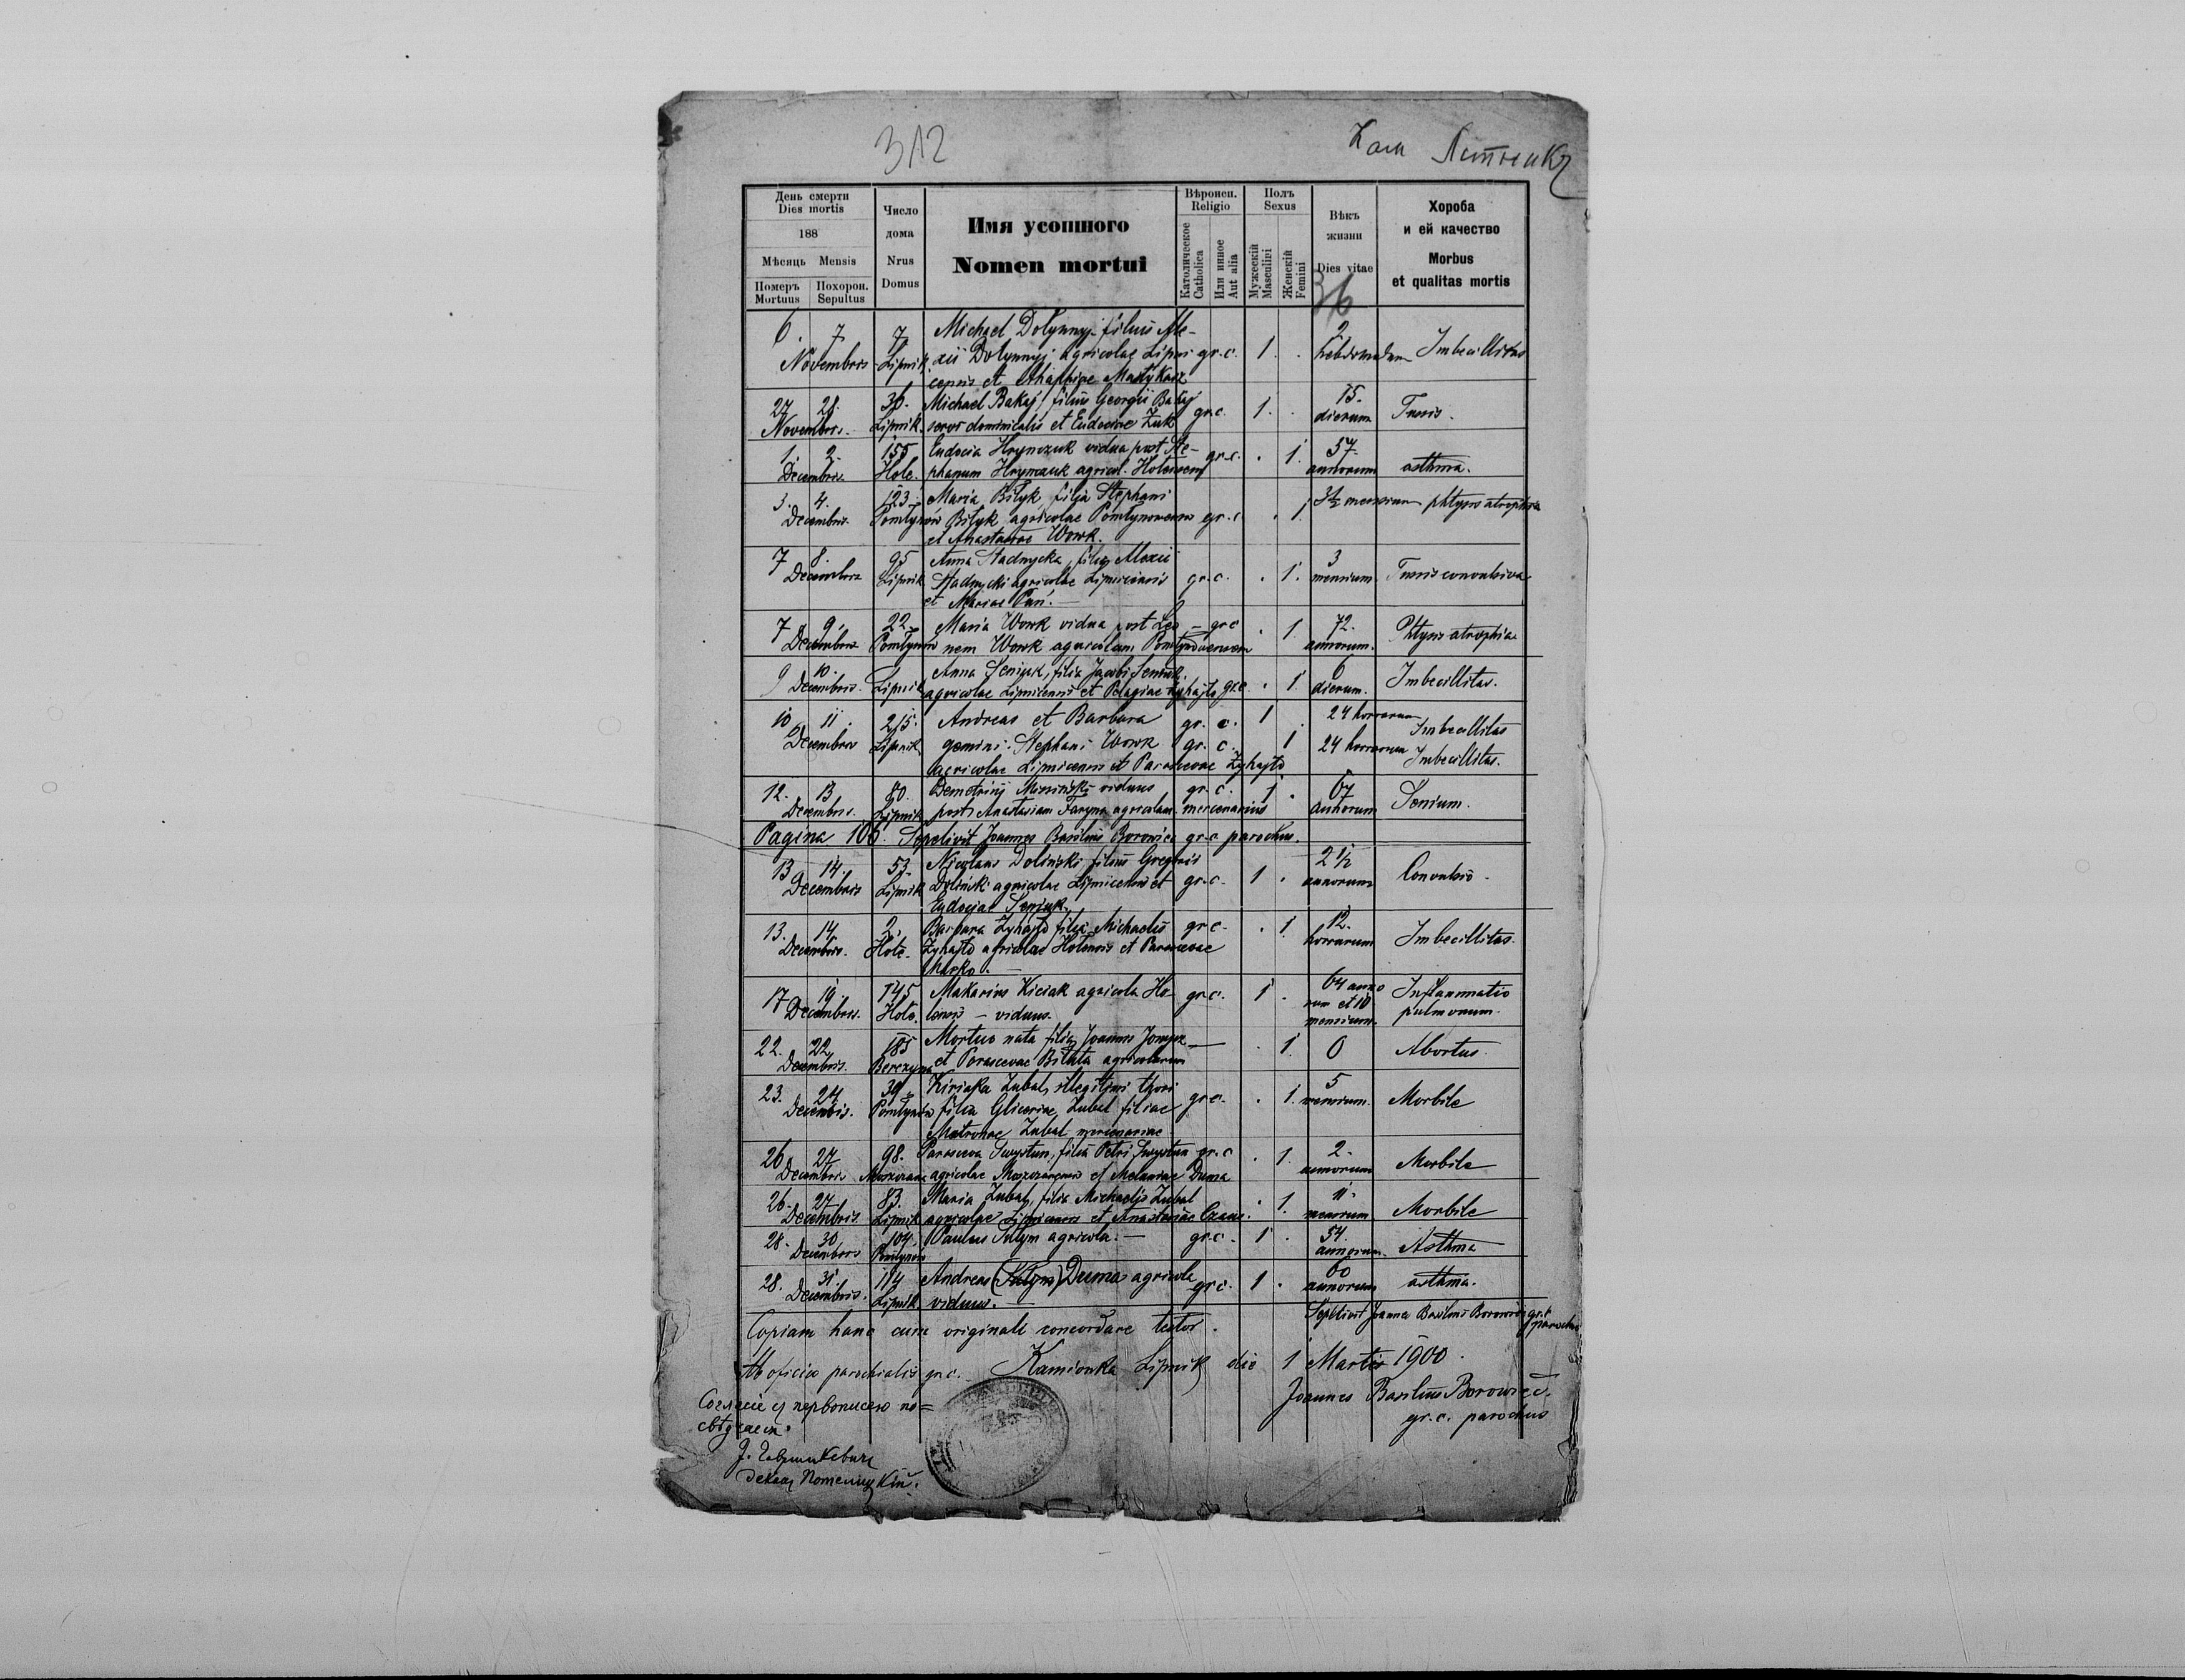 312
Кам Липник
День смерти
Dies mortis
188
Мѣсяць Mensis
Померъ Mortuus
Похорон. Sepultus
Число дома
Nrus Domus
Имя усопшого
Nomen mortui
Вѣроисп.
Religio
Католическое
Catholica
Или инное
Aut alia
Полъ
Sexus
Мужескій
Masculini
Женскій
Femini
Вѣкъ жизни
Dies vitae
36
Хороба
и ей качество
Morbus
et qualitas mortis
6. 7. Novembris 7 Lipnik
Michael Dolynnyj filius Ale-
xii Dolynnyj agricolae Lipni- gr. c. 1 . 2 hebdomadum Imbecillitas
censis et
27 28. Novembris. 36. Lipnik.
Michael Bakaj filius Georgii Bakaj gr. c. 1. . 15. dierum Tussis.
servi dominicalis et Eudociae Zuk
1. 2. Decembris. 155 Hole.
Eudocia Hrynczuk vidua post Ste- gr. c. . 1. 57 annorum asthma.
phanum Hrynczuk agricol. Holensem
3. 4. Decembris. 123. Pomłynów
Maria Biłyk filia Stephani
Biłyk agricolae gr. c . 1. 3½ mensium phtysis atrophia
et Anastasiae Wowk.
7 8. Decembris 95 Lipnik
Anna Stadnycka, filia Alexii
Stadnycki agricolae Lipnicensis gr. c. . 1. 3 mensium Tussis convulsiva
et Mariae Pań.
7 9. Decembris 22. Pomłynów
Maria Wowk vidua post Leo- gr c . 1. 72. annorum. Phtysis atrophia
nem Wowk agricolam
9 10. Decembris. Lipnik
Anna Seniuk, filia Jacobi Seniuk
agricolae Lipnicensis et Pelagiae Zyhajło gr. c. . 1. 6 dierum. Imbecillitas.
10 11. Decembris 215. Lipnik
Andreas et Barbara gr. c. 1 . 24 horrarum Imbecillitas
gemini Stephani Wowk gr. c. 1 24 horrarum Imbecillitas.
agricolae Lipnicensis et Parascevae Zyhajło
12. 13 Decembris. 80. Lipnik
Demetrius viduus gr. c. 1 . 67 annorum Senium.
post Anastasiam Faryna agricolam mercenarius
Pagina 106. Sepelivit Joannes Basilius Borowiec gr. c. parochus.
13 14. Decembris 53. Lipnik
Nicolaus Doliński filius Gregorii
Doliński agricolae Lipnicensis et gr. c. 1 . 2½ annorum Convulsio.
Eudociae Seniuk.
13. 14 Decembris. 2. Hole.
Barbara Zyhajło filia Michaelis gr c. . 1. 12. horrarum Imbecillitas.
Zyhajło agricolae Holensis et Parascevae
Marko.
17 19. Decembris. 145 Hole.
Makarius Kiciak agricola Ho- gr. c. 1 . 64 anno
lensis – viduus. rum et 10 mensium. Inflammatio pulmonum.
22. 22. Decembris. 185 Berezyna
Mortuo nata filia Joannis — . 1. 0 Abortus.
et Parascevae agricolarum
23. 24 Decembris. 39 Pomłynów
Kiriaka Zubal, illegitimi thori
filia Gliceriae Zubal filiae gr. c. . 1. 5 mensium. Morbile
Matronae Zubal mercenariae
26 27 Decembris 98.
Parasceva Swystun, filia Petri Swystun gr. c . 1. 2. annorum Morbile
agricolae et Melaniae Duma
26. 27 Decembris. 83. Lipnik
Maria Zubal, filia Michaelis Zubal . 1. 11. mensium Morbile
agricolae Lipnicensis et Anastasiae
28. 30 Decembris 104. Pomłynów
Paulus agricola. — gr. c. 1 . 54. annorum. Asthma
28. 31. Decembris. 114 Lipnik.
Andreas Duma agricola gr. c. 1 . 60 annorum asthma.
viduus.
Sepelivit Joannes Basilius Borowiec gr. c. parochus
Copiam hanc cum originali concordare testor.
Ab officio parochialis gr. c. Kamionka Lipnik die 1 Martis 1900.
Joannes Basilius Borowiec.
gr. c. parochus
Согласіе съ первописею по=
свѣдчаетъ